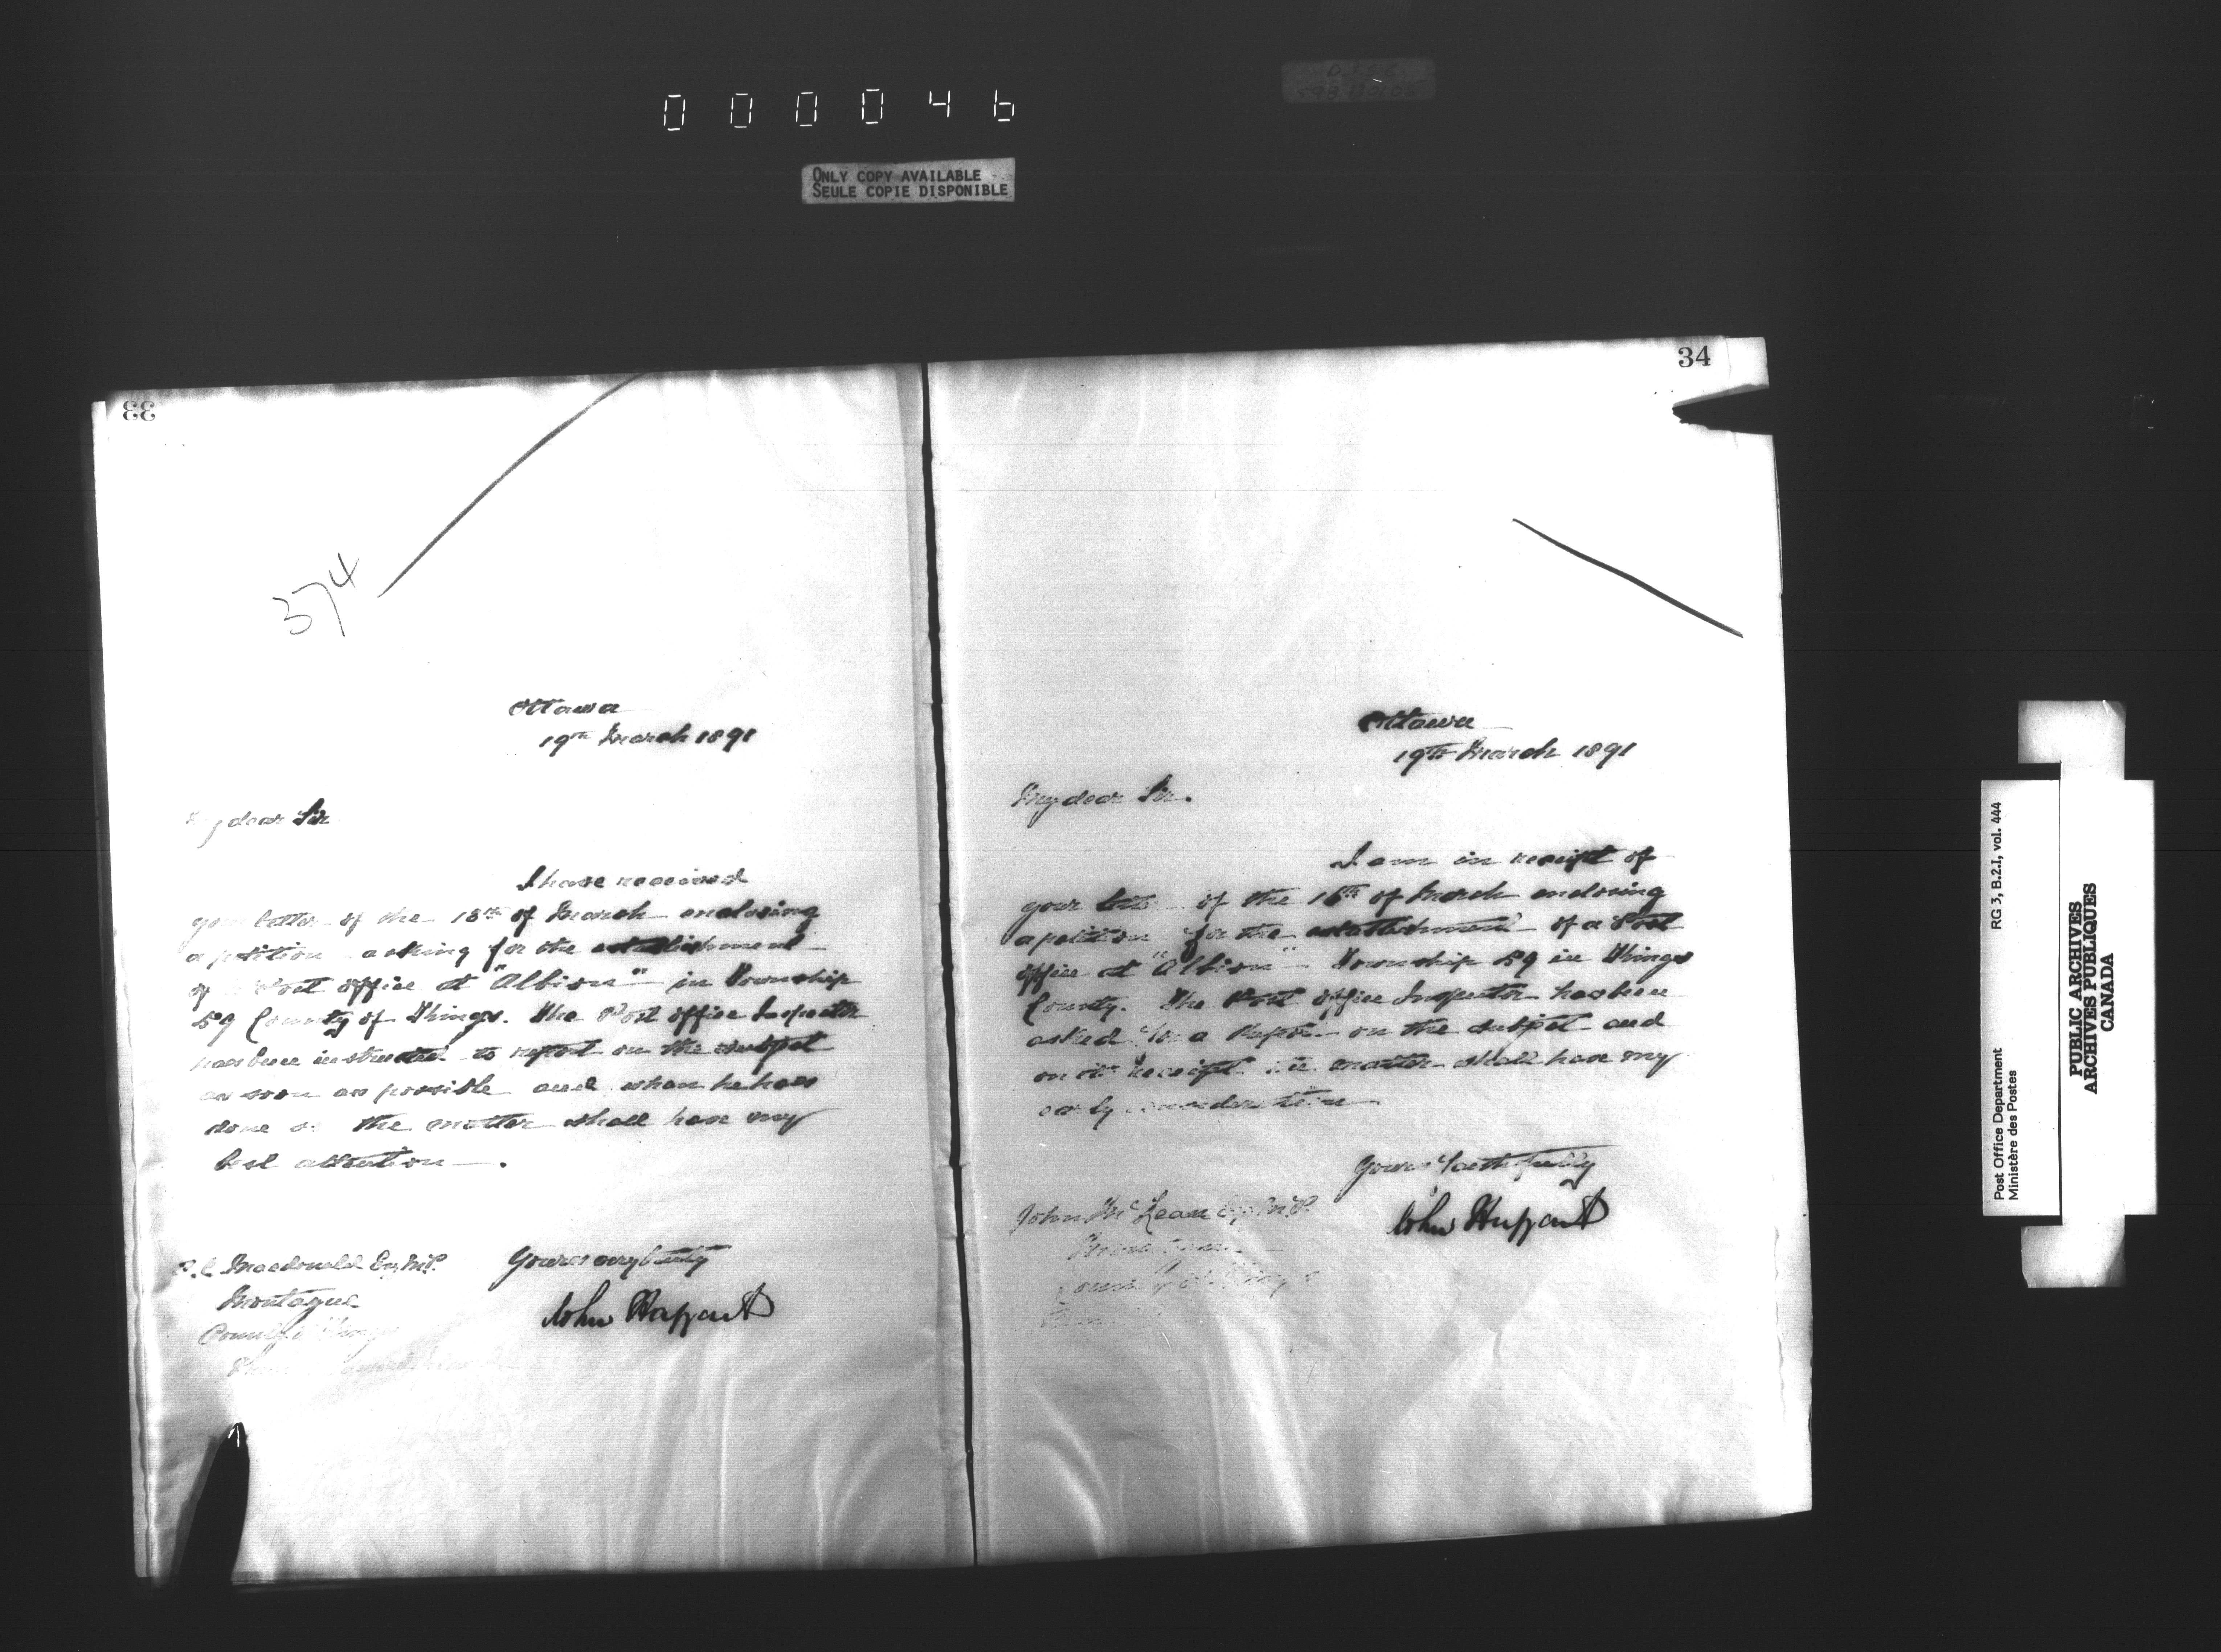 000046
ONLY COPY AVAILABLE
SEULE COPIE DISPONIBLE
33
374
Ottawa
19th March 1891
My dear Sir
I have received
your letter of the 18th of March enclosing
a petition asking for the establishment
of Post office at "Albion" in Township
59 County of Kings. The Post office Inspector
has been instructed to report on the subject
as soon as possible and when he has
done so the matter shall have my
best attention.
Yours very truly
John Haggart
A. C. Macdonald Esq M.P.
Montague
County Kings
34
Ottawa
19th March 1891
My dear Sir.
I am in receipt of
your letter of the 16th of March enclosing
a petition for the establishment of a Post
office at "Albion" Township 59 in Kings
County. The Post office Inspector has been
asked for a Report on the subject and
on its Receipt the matter shall have my
early consideration
Yours faithfully
John Haggart
John McLean Esq M.P.
County of Kings
Post Office Department
Ministère des Postes
RG 3, B.2.1, vol. 444
PUBLIC ARCHIVES
ARCHIVES PUBLIQUES
CANADA